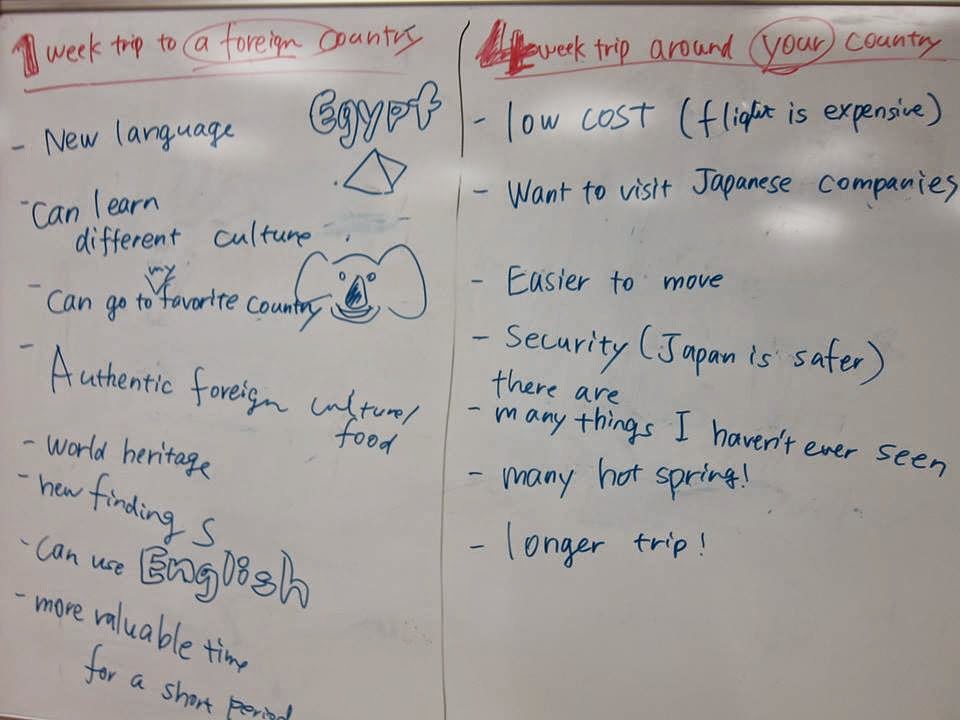 1 week trip to a foreign country
- New language
Egypt
- can learn
different culture
- can go to my favorite country
- Authentic foreign culture/
food
- world heritage
- new findings
- can use English
- more valuable time
for a short period
4 week trip around your country
- low cost (flight is expensive)
- Want to visit Japanese companies
- Easier to move
- Security (Japan is safer)
there are
- many things I haven't ever seen
- many hot spring!
- longer trip!